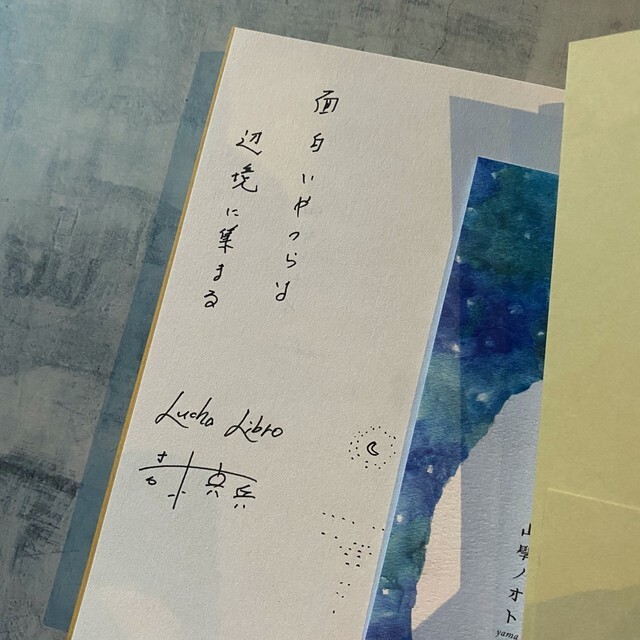 面白いやつらは
辺境に集まる
Lucha Libro
山學ノオト
yama